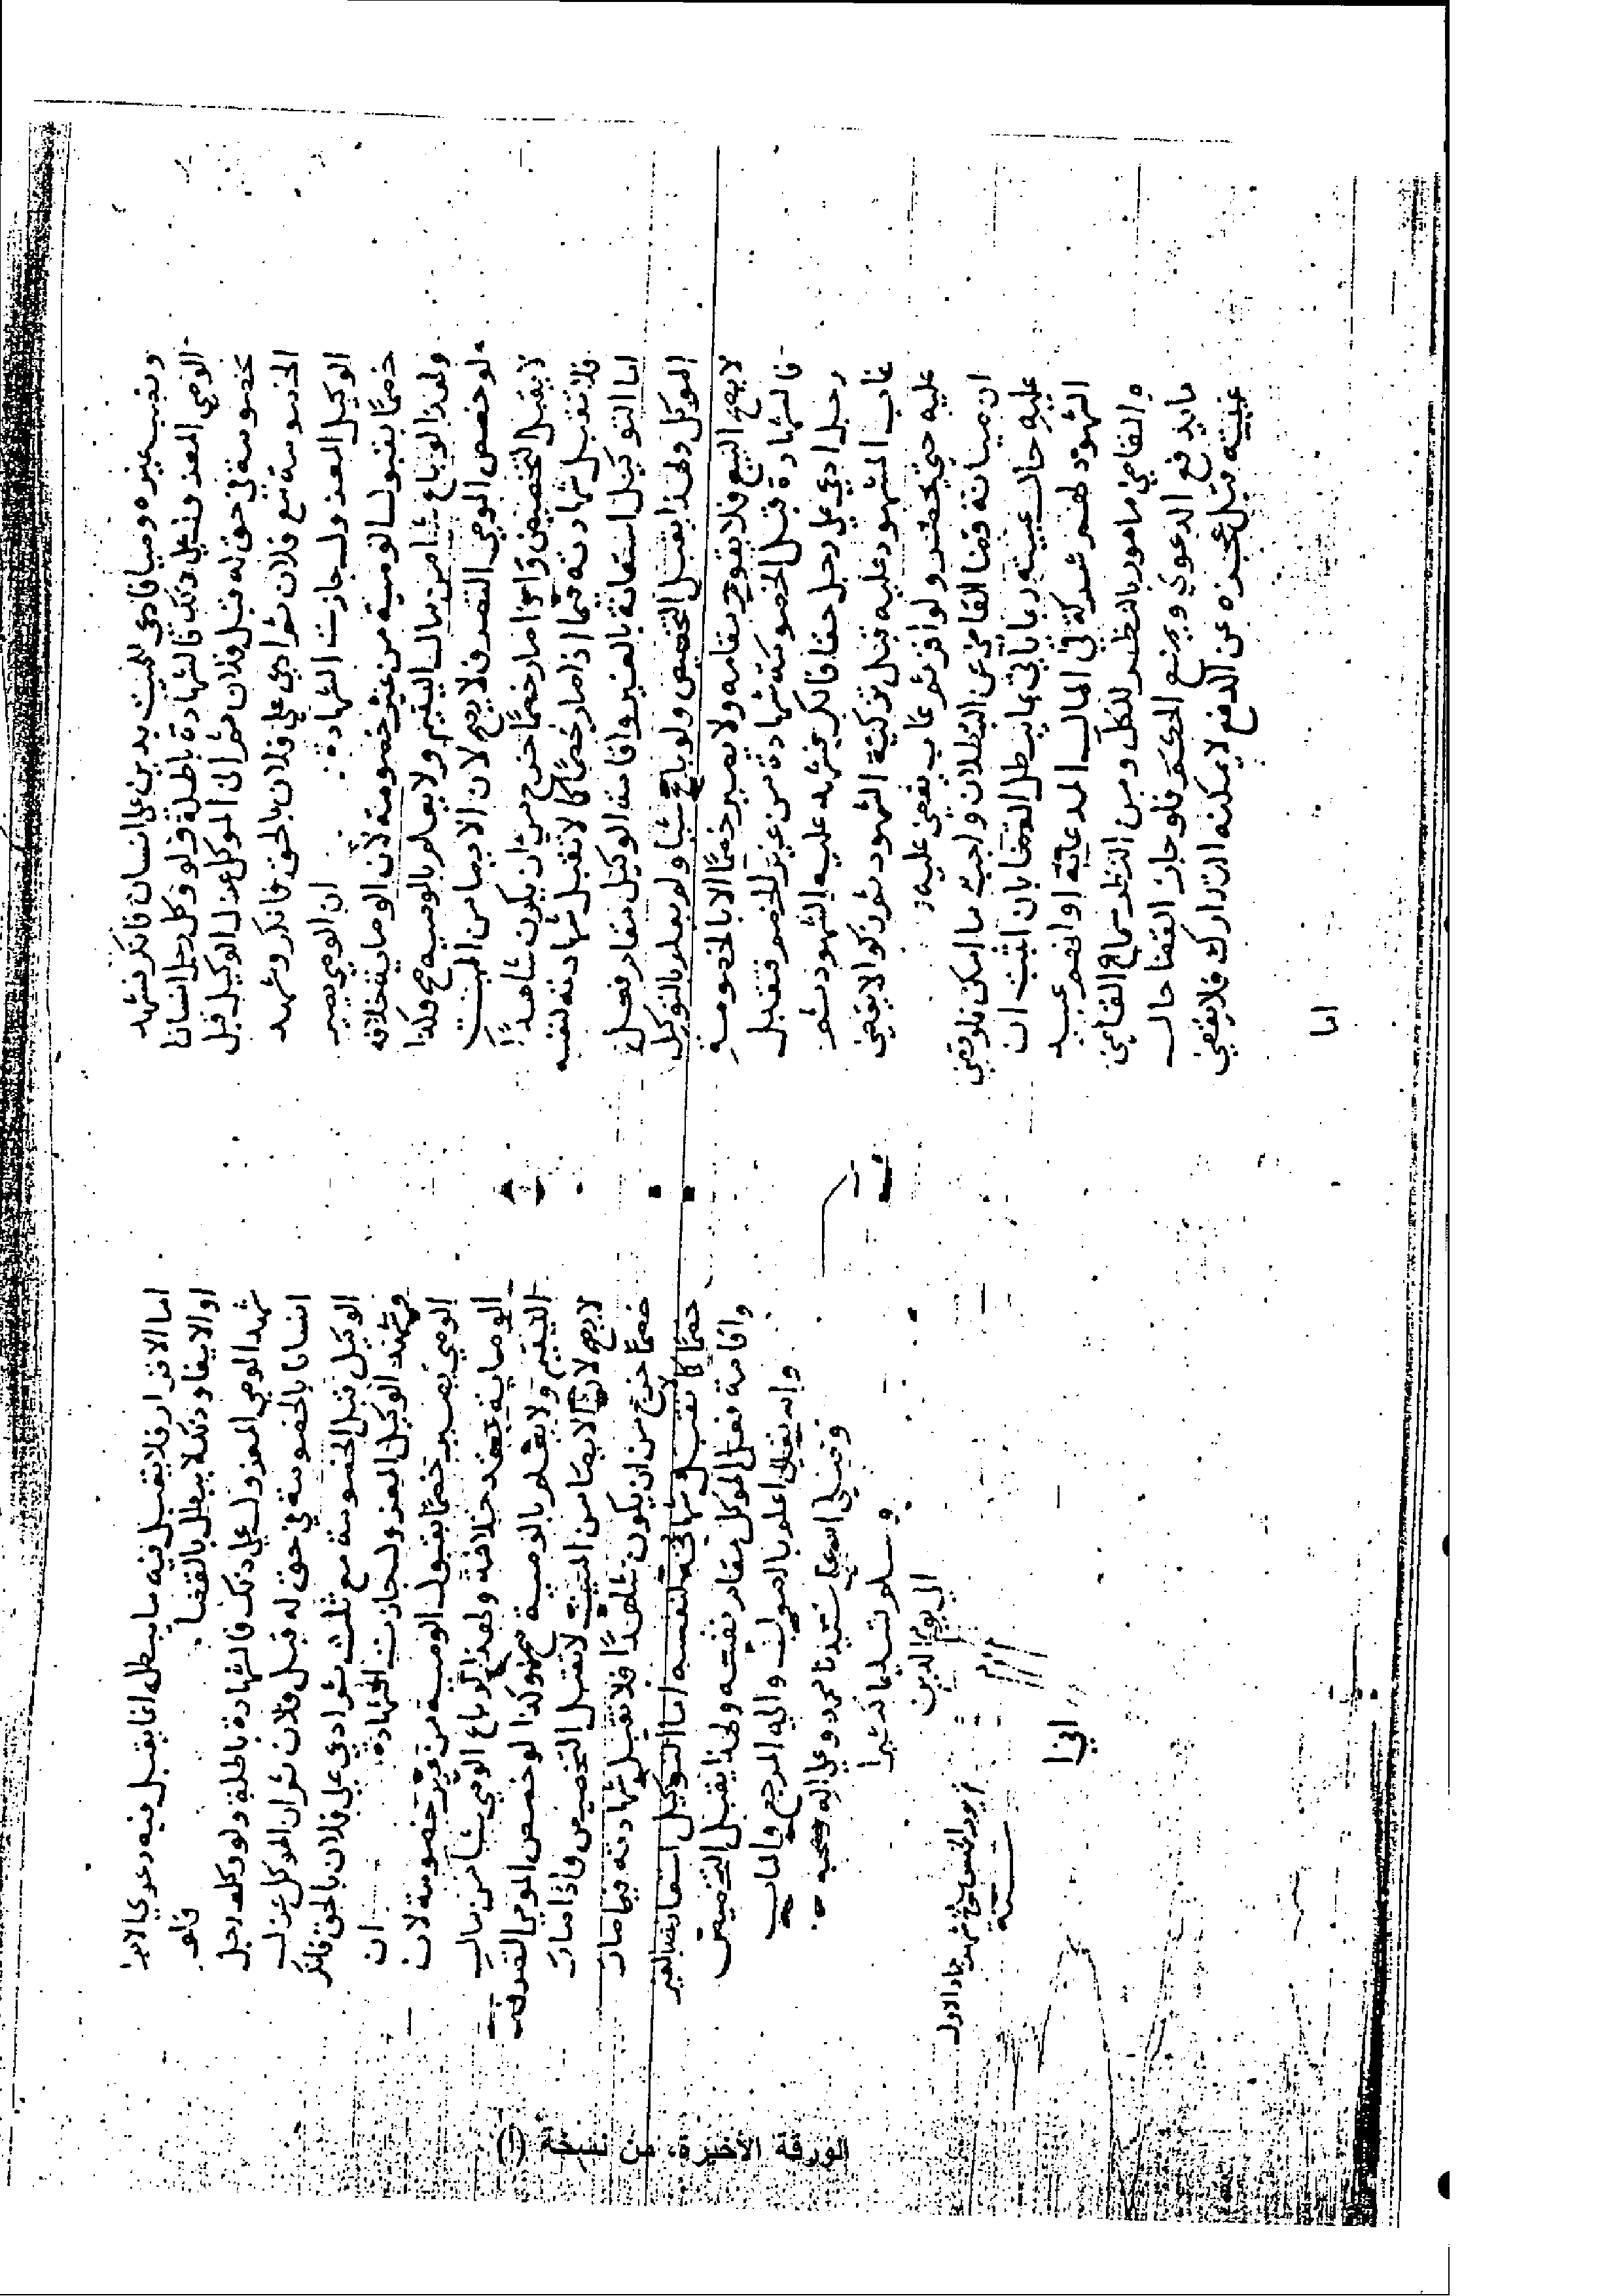 ونصب غيره وصيا فادعي للميت بدين علي انسان فانكر فشهد
الوصي المعزول علي ذلك فالشهادة باطلة ولو وكل رجل انسانا
بخصومة في حق له قبل فلان ثم ان الموكل عزل الوكيل قبل
الخصومة مع فلان ثم ادعي علي فلان بالحق فانكر وشهد
الوكيل المعزول جازت الشهادة ان الوصي يصير
خصما بقبول الوصية من غير خصومة لان الوصاية خلافه
ولهذا لو باع شيا من مال اليتيم ولا يعلم بالوصيه صح وكذا
لو خصص الوصي التصرف لا يصح لان الايصا من الميت
لا يقبل التخصيص واذا صار خصما خرج من ان يكون شاهدا
فلا تقبل شهادته فيما اذا صار خصما كما لا تقبل شهادته لنفسه
اما التوكيل استعانة بالغير واقامة الوكيل مقام فعل
الموكل ولهذا يقبل التخصيص ولو باع شيا ولم يعلم بالتوكيل
لا يصح البيع فلا يقوم مقامه ولا يصير خصما الا بالخصومة
فالشهادة قبل الخصومة شهادة من غير الخصم فتقبل
رجل ادعي علي رجل حقا فانكر فشهد عليه الشهود ثم
غاب المشهود عليه قبل تزكية الشهود ثم زكوا لا يقضي
عليه حتي يحضر ولو اقر ثم غاب يقضي عليه
ان صيانة قضا القاضي عن البطلان واجب ما امكن فلو قضي
عليه حال غيبته ربما ياتي بما يبطل القضا بان اثبت ان
الشهود لهم شركة في المال المدعاة او انهم عبيد
والقاضي مامور بالنظر للكل ومن النظر سماع القاضي
ما يدفع الدعوي ويمنع الحكم فلو جاز القضا حال
غيبته قبل عجزه عن الدفع لا يمكنه التدارك فلا يقضي
اما
اما الاقرار فلا يقبل فيه ما يبطل انما يقبل فيه دعوي الابرا
او الايفا وذلك لا يبطل بالقضا فلو
شهد الوصي المعزول علي ذلك فالشهادة باطلة ولو وكله رجل
انسانا بالخصومة في حق له قبل فلان ثم ان الموكل عزل
الوكيل قبل الخصومة مع ثم ادعي علي فلان بالحق فانكر
وشهد الوكيل المعزول جازت الشهادة ان
الوصي يصير خصما بقبول الوصية من غير خصومة لان
الوصاية خلافة ولهذا لو باع الوصي شيا من مال
اليتيم ولا يعلم بالوصية صح وكذا لو خصص الوصي التصرف
لا يصح لان الايصا من الميت لا تقبل التخصيص فاذا صار
خصما خرج من ان يكون شاهدا فلا تقبل شهادته فيما صار
خصما كما لا تقبل شهادته لنفسه اما التوكيل استعانة بالغير
واقامة فعل الموكل مقام نفسه ولهذا يقبل التخصيص
والله تعالي اعلم بالصواب واليه المرجع والماب
وصلي الله علي سيدنا محمد وعلي اله وصحبه
وسلم تسليما كثيرا
الي يوم الدين
يوم الخميس شهر جماد الاول
سنة
الورقة الأخيرة من نسخة